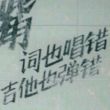 词也唱错
吉他也弹错